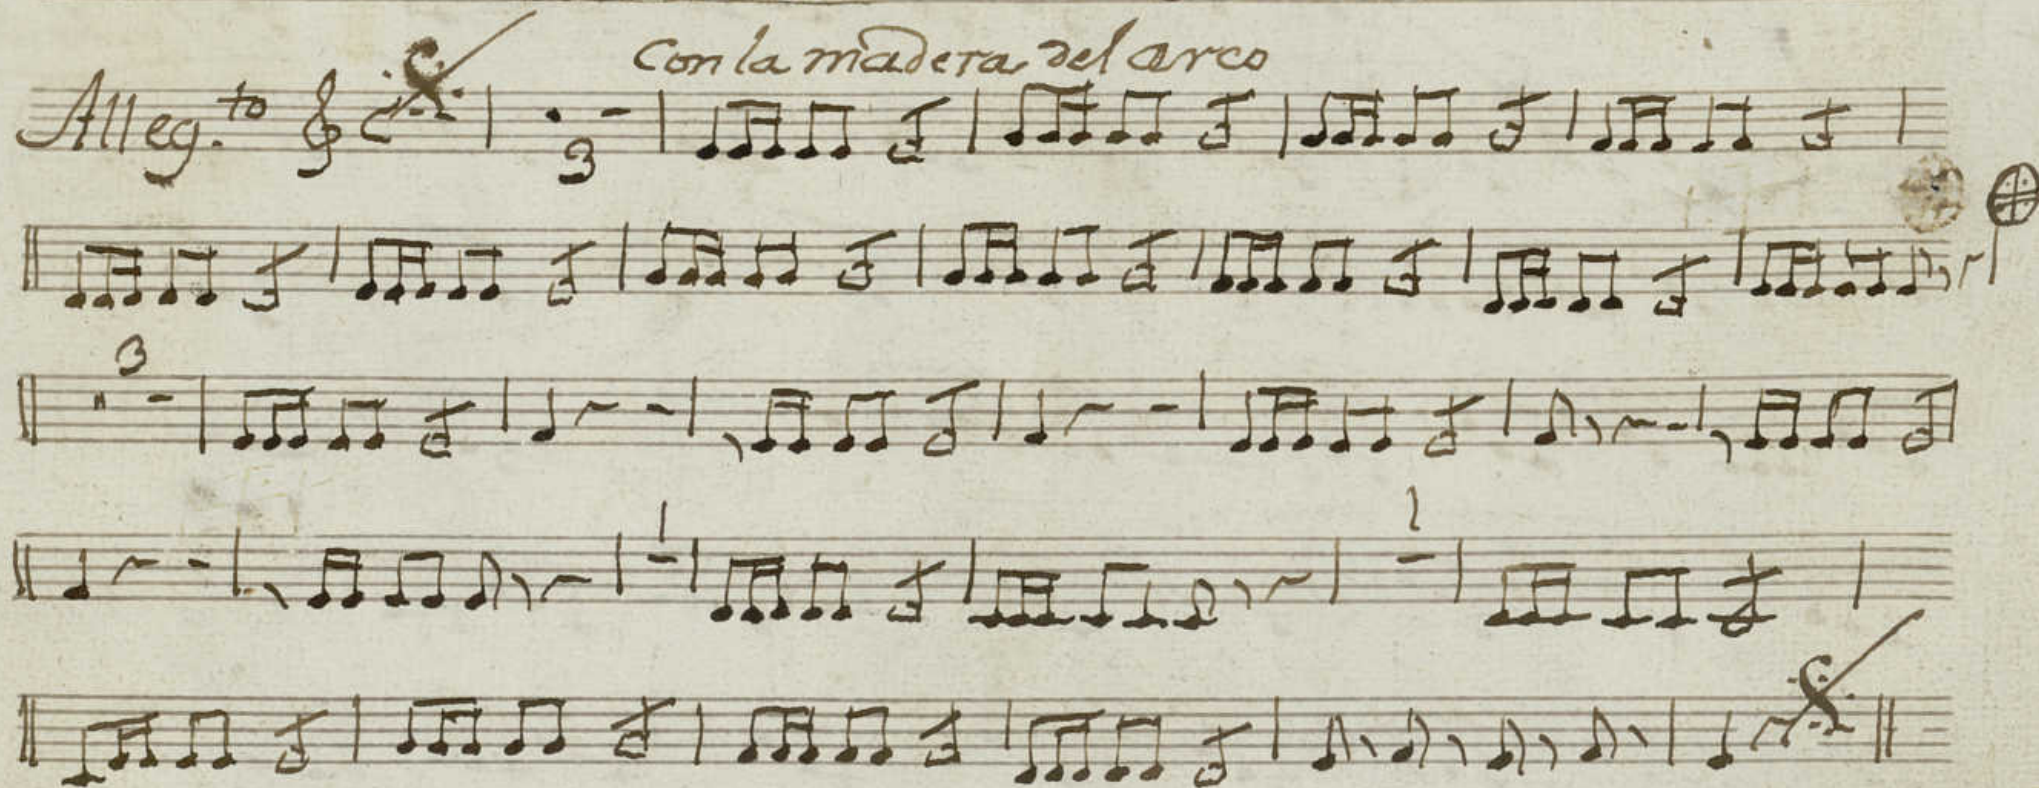 Con la madera del arco
Alleg.to
3
3
1
1